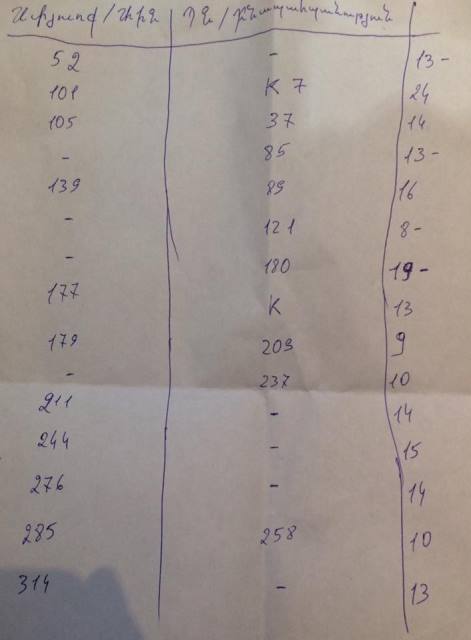 52 - 13-
101 K 7 24
105 37 14
- 85 13-
139 89 16
- 121 8-
- 180 19-
177 K 13
179 209 9
- 237 10
211 - 14
244 - 15
276 - 14
285 258 10
314 - 13